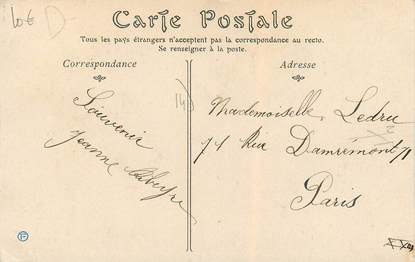 10€ D-
Carte Postale
Tous les pays étrangers n'acceptent pas la correspondance au recto.
Se renseigner à la poste.
Correspondance
Adresse
Souvenir
Jeanne
Mademoiselle Ledru
71 Rue Damrémont 71
Paris